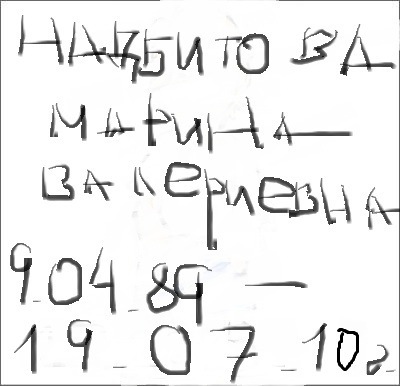 НАДБИТОВА
МАРИНА
ВАЛЕРИЕВНА
9.04.89 —
19.07.10г